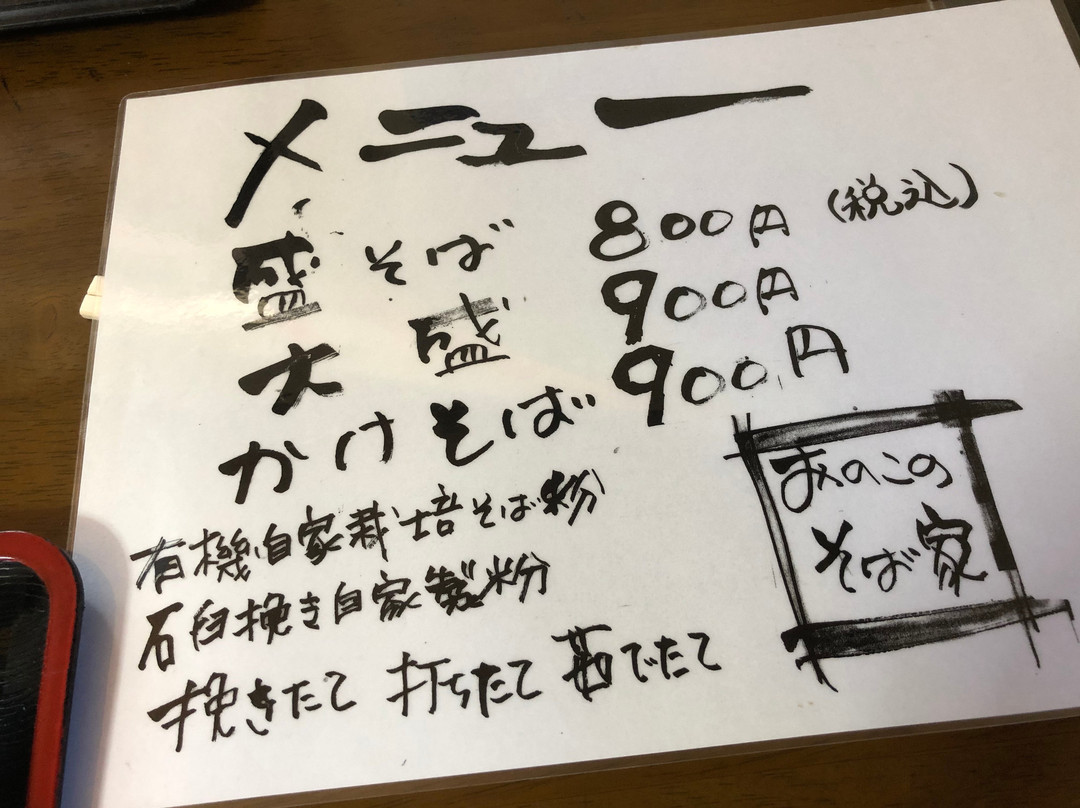 メニュー
盛そば 800円 (税込)
大盛 900円
かけそば 900円
有機自家栽培そば粉
石臼挽き自家製粉
挽きたて 打ちたて 茹でたて
そば家